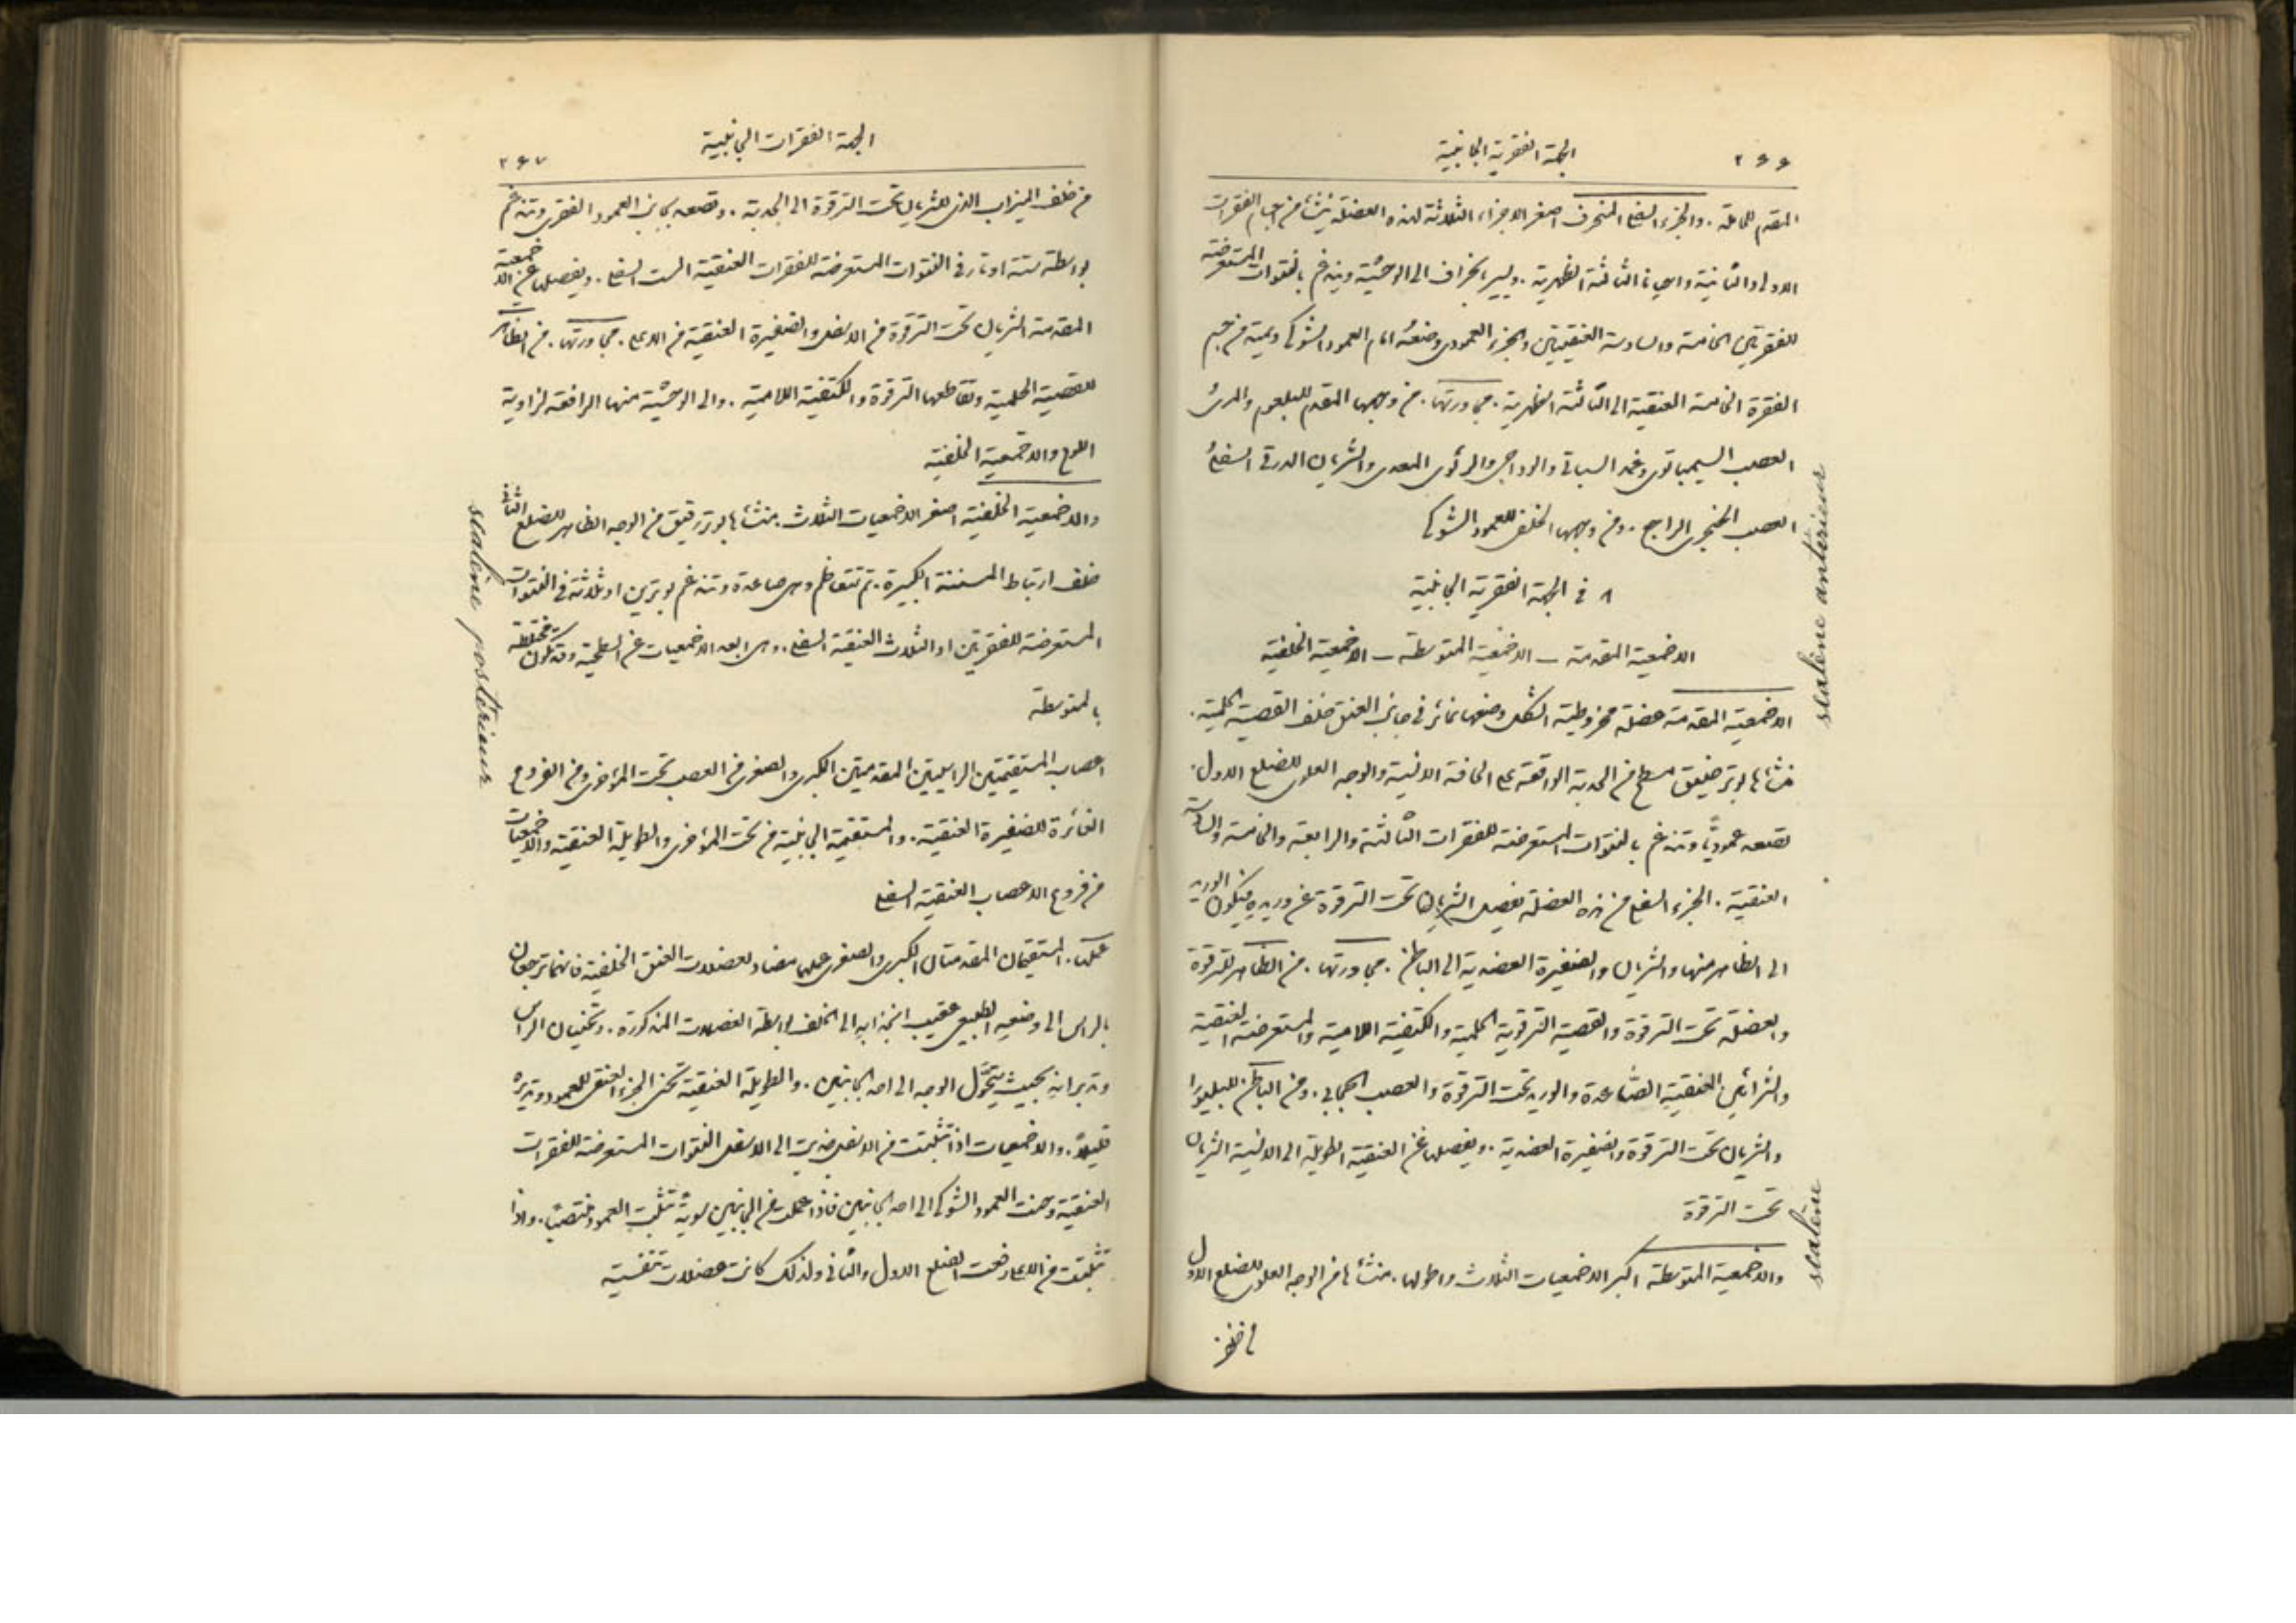 ٢٦٦
الجهة الفقرية الجانبية
المقدم للحاملة . والجزء السفلي المنحرف اصغر الاجزاء الثلاثة لهذه العضلة ينشأ من اجسام الفقرات
الاولى والثانية واحيانا الثالثة الظهرية . ويسير بانحراف الى الوحشية ويندغم بالنتوات المستعرضة
للفقرتين الخامسة والسادسة العنقيتين والجزء العمودي وضعهُ امام العمود الشوكي ويمتد من جسم
الفقرة الخامسة العنقية الى الثالثة الظهرية . مجاورتها . من وجهها المقدم للبلعوم والمرئ
العصب السيمباتوي وغمد السباتي والوداجي والرئوي المعدي والشريان الدرقي السفلي
العصب الحنجري الراجع . ومن وجهها الخلفي للعمود الشوكي
scalène antérieur
٨ في الجهة الفقرية الجانبية
الاخمعية المقدمة – الاخمعية المتوسطة – الاخمعية الخلفية
الاخمعية المقدمة عضلة مخروطية الشكل وضعها غائر في جانب العنق خلف القصية الحلمية .
منشأها بوتر ضيق مسطح من الحدبة الواقعة على الحافة الانسية والوجه العلوي للضلع الاول .
تصعد عموديًا وتندغم بالنتوات المستعرضة للفقرات الثالثة والرابعة والخامسة والسادسة
العنقية . الجزء السفلي من هذه العضلة يفصل الشريان تحت الترقوة عن وريده فيكون الوريد
الى الظاهر منها والشريان والضفيرة العضدية الى الباطن . مجاورتها . من الظاهر للترقوة
والعضلة تحت الترقوة والقصية الترقوية الحلمية والكتفية اللامية والمستعرضة العنقية
والشرائين العنقية الصاعدة والوريد تحت الترقوة والعصب الحجابي . ومن الباطن للبليورا
والشريان تحت الترقوة والضفيرة العضدية . ويفصلها عن العنقية الطويلة الى الانسية الشريان
تحت الترقوة
scalène
والاخمعية المتوسطة اكبر الاخمعيات الثلاث واطولها . منشأها من الوجه العلوي للضلع الاول
من خلف
الجهة الفقرات الجانبية
٢٦٧
من خلف الميزاب الذي للشريان تحت الترقوة الى الحدبة . وتصعد بجانب العمود الفقري وتندغم
بواسطة ستة اوتار في النتوات المستعرضة للفقرات العنقية الست السفلى . ويفصلها عن الاخمعية
المقدمة الشريان تحت الترقوة من الاسفل والضفيرة العنقية من الاعلى . مجاورتها . من الظاهر
للقصية الحلمية وتقاطعها الترقوة والكتفية اللامية . والى الوحشية منها الرافعة لزاوية
اللوح والاخمعية الخلفية
والاخمعية الخلفية اصغر الاخمعيات الثلاث . منشأها بوتر رقيق من الوجه الظاهر للضلع الثاني
خلف ارتباط المسننة الكبيرة . ثم تتعاظم وهي صاعدة وتندغم بوترين او ثلاثة في النتوات
المستعرضة للفقرتين او الثلاث العنقية السفلى . وهي ابعد الاخمعيات عن السطحية وقد تكون مختلطة
scalène postérieur
بالمتوسطة
اعصاب المستقيمتين الراسيتين المقدمتين الكبرى والصغرى من العصب تحت المؤخري ومن الفروع
الغائرة للضفيرة العنقية . والمستقيمة الجانبية من تحت المؤخري والطويلة العنقية والاخمعيات
من فروع الاعصاب العنقية السفلى
عملها . المستقيمتان المقدمتان الكبرى والصغرى عملهما مضاد لعضلات العنق الخلفية فانهما ترجعان
بالراس الى وضعهِ الطبيعي عقيب انجذابهِ الى الخلف بواسطة العضلات المذكورة . وتحنيان الراس
وتديرانهِ بحيث يتحوّل الوجه الى احد الجانبين . والطويلة العنقية تحني الجزء العنقي للعمود وتديرهُ
قليلاً . والاخمعيات اذا تثبتت من الاسفل جذبت الى الاسفل النتوات المستعرضة للفقرات
العنقية وحنت العمود الشوكي الى احد الجانبين فاذا عملت من الجانبين سويةً تثبت العمود منتصبًا . واذا
تثبتت من الاعلى رفعت الضلع الاول والثاني ولذلك كانت عضلات تنفسية